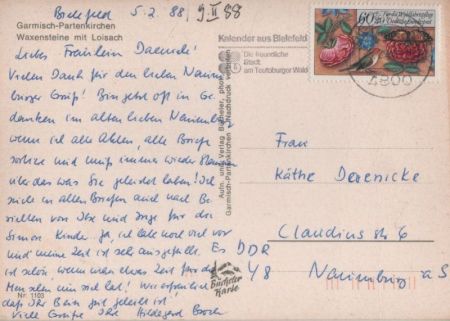 Bielefeld 5.2 88, 9.II 88
Garmisch-Partenkirchen
Waxensteine mit Loisach
Liebes Fräulein
Vielen Dank für den lieben Naum
burger Gruß! Bin jetzt oft in Ge
danken im alten lieben Naumburg
wenn ich alle Akten, alle Briefe
sortiere und muß immer wieder
über das was Sie geleistet haben! Ich
suche in allen Briefen auch nach
von und Sorge für die
Kinder. Ja, ich habe noch viel vor
und meine Zeit ist sehr ausgefüllt. Es
ist schön, wenn man etwas Zeit für die
Menschen um sich hat! Wie
daß Ihr Bein gut geheilt ist!
Viele Grüße Ihre Hildegard
Nr. 1103
Aufn. und Verlag Bücheler, photo
Garmisch-Partenkirchen Nachdruck verboten
Bücheler
Karte
Kalender aus Bielefeld
Die freundliche
Stadt
am Teutoburger Wald
60
4800
Frau
Käthe Derenicke
Claudiusstr 6
DDR
48 Naumburg a S